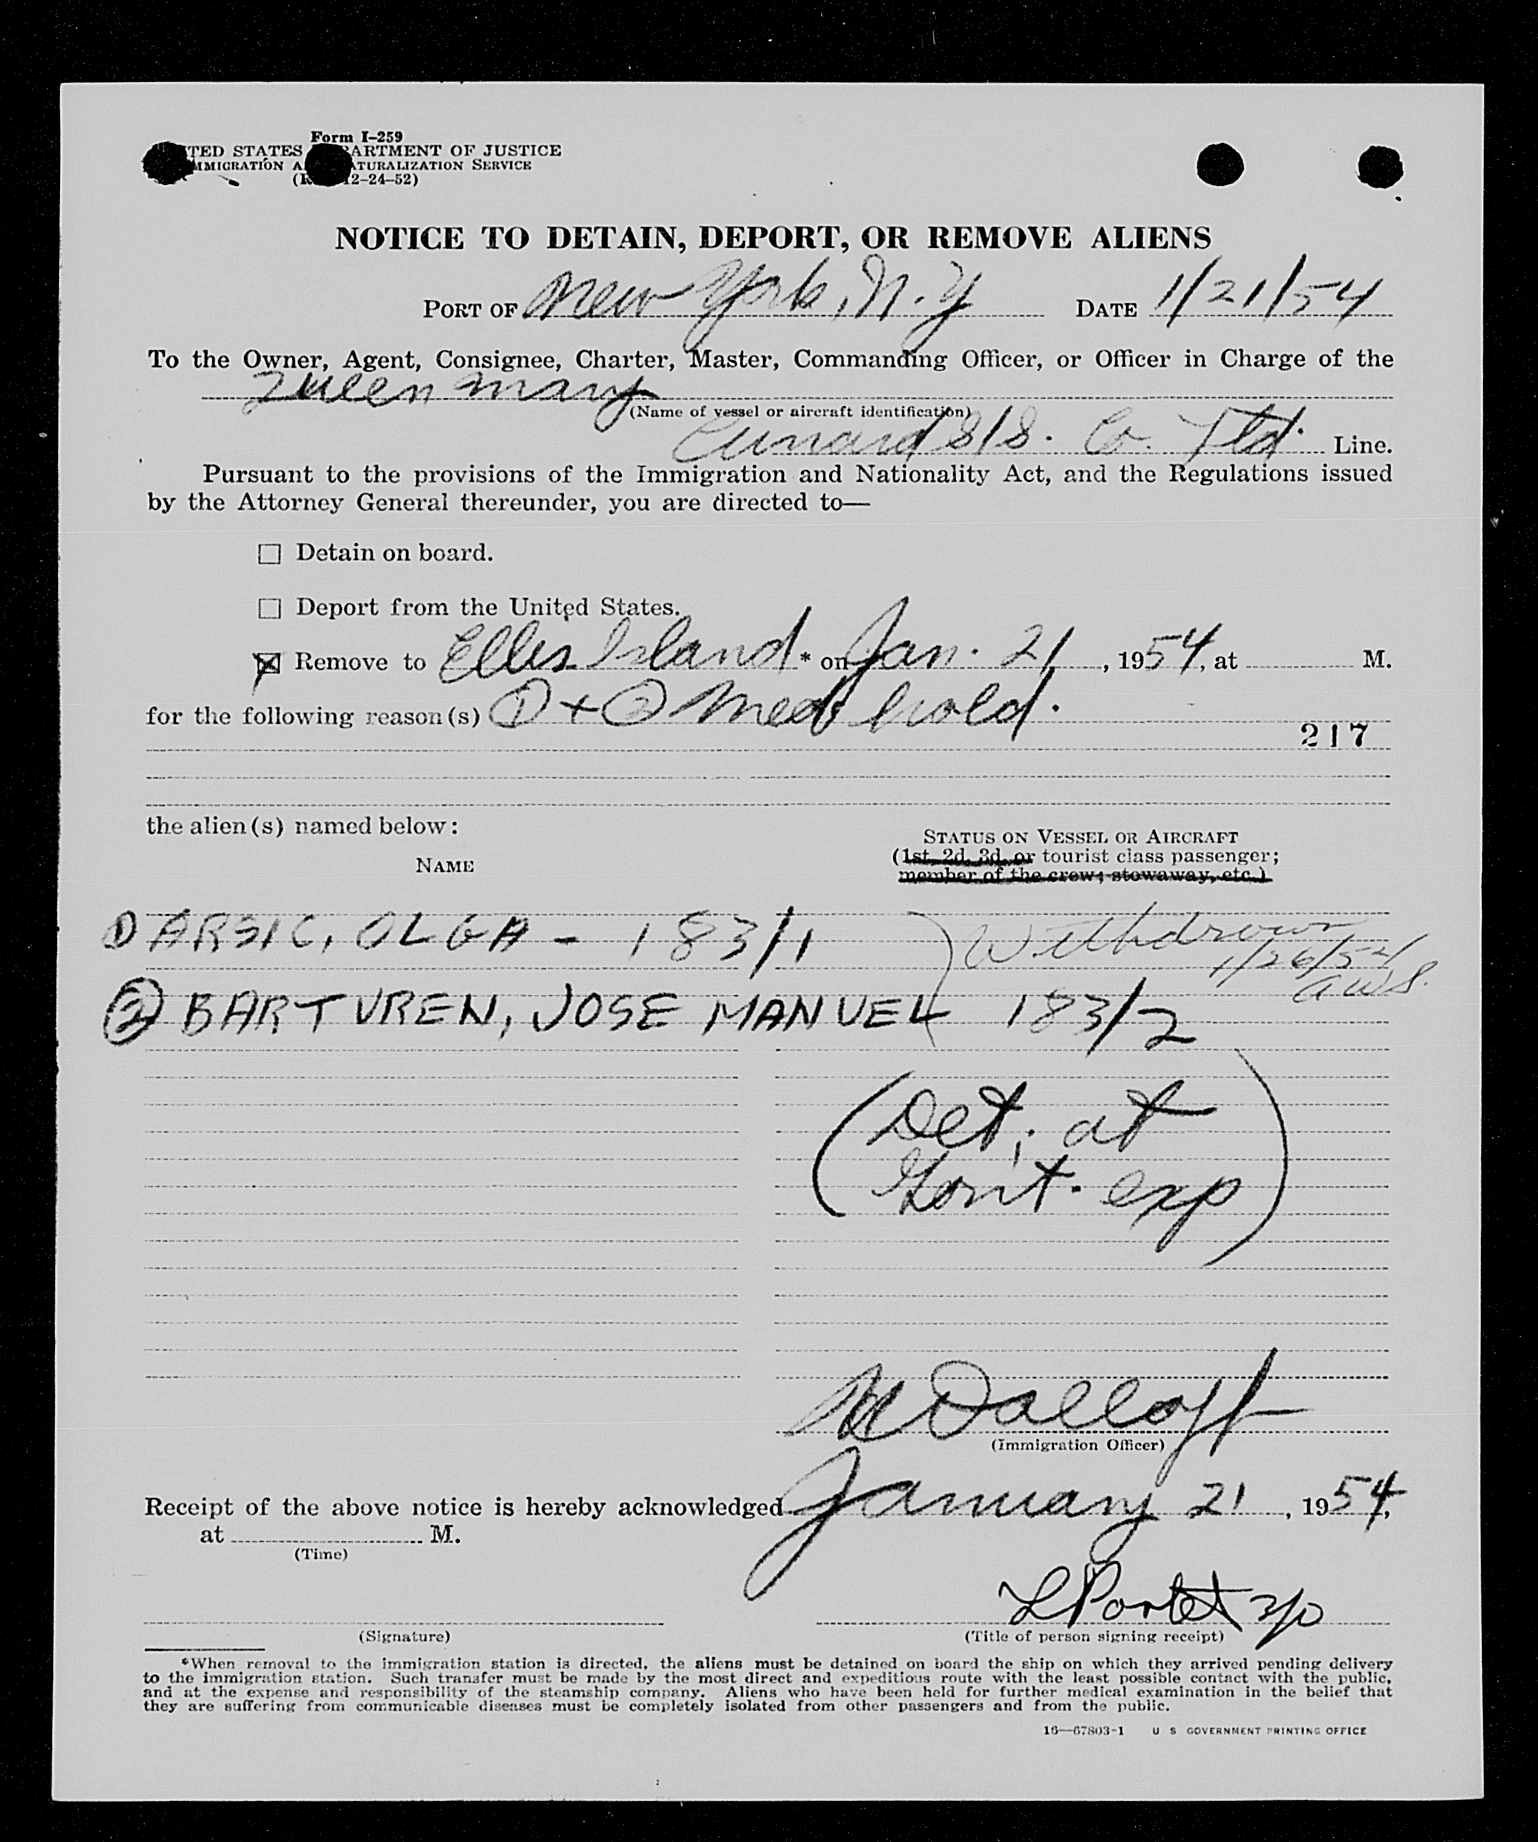 Form I-259
TED STATES ARTMENT OF JUSTICE
MMIGRATION A TURALIZATION SERVICE
12-24-52)
NOTICE TO DETAIN, DEPORT, OR REMOVE ALIENS
PORT OF New York, N.Y DATE 1/21/54
To the Owner, Agent, Consignee, Charter, Master, Commanding Officer, or Officer in Charge of the
Queen Mary
(Name of vessel or aircraft identification)
Cunard S/S. Co. Ltd. Line.
Pursuant to the provisions of the Immigration and Nationality Act, and the Regulations issued
by the Attorney General thereunder, you are directed to—
☐ Detain on board.
☐ Deport from the United States.
☒ Remove to Ellis Island * on Jan. 21, 1954, at M.
for the following reason(s) ① + ② Med hold.
217
the alien(s) named below:
STATUS ON VESSEL OR AIRCRAFT
NAME
(1st, 2d, 3d, or tourist class passenger;
member of the crew; stowaway, etc.)
① ARSIC, OLGA - 183/1
Withdrawn
1/26/54
AWS.
② BARTUREN, JOSE MANUEL 183/2
(Det. at
Gov't. exp)
Dalloff
(Immigration Officer)
Receipt of the above notice is hereby acknowledged January 21, 1954,
at M.
(Time)
(Signature)
(Title of person signing receipt)
*When removal to the immigration station is directed, the aliens must be detained on board the ship on which they arrived pending delivery
to the immigration station. Such transfer must be made by the most direct and expeditious route with the least possible contact with the public,
and at the expense and responsibility of the steamship company. Aliens who have been held for further medical examination in the belief that
they are suffering from communicable diseases must be completely isolated from other passengers and from the public.
16—67803-1 U S GOVERNMENT PRINTING OFFICE